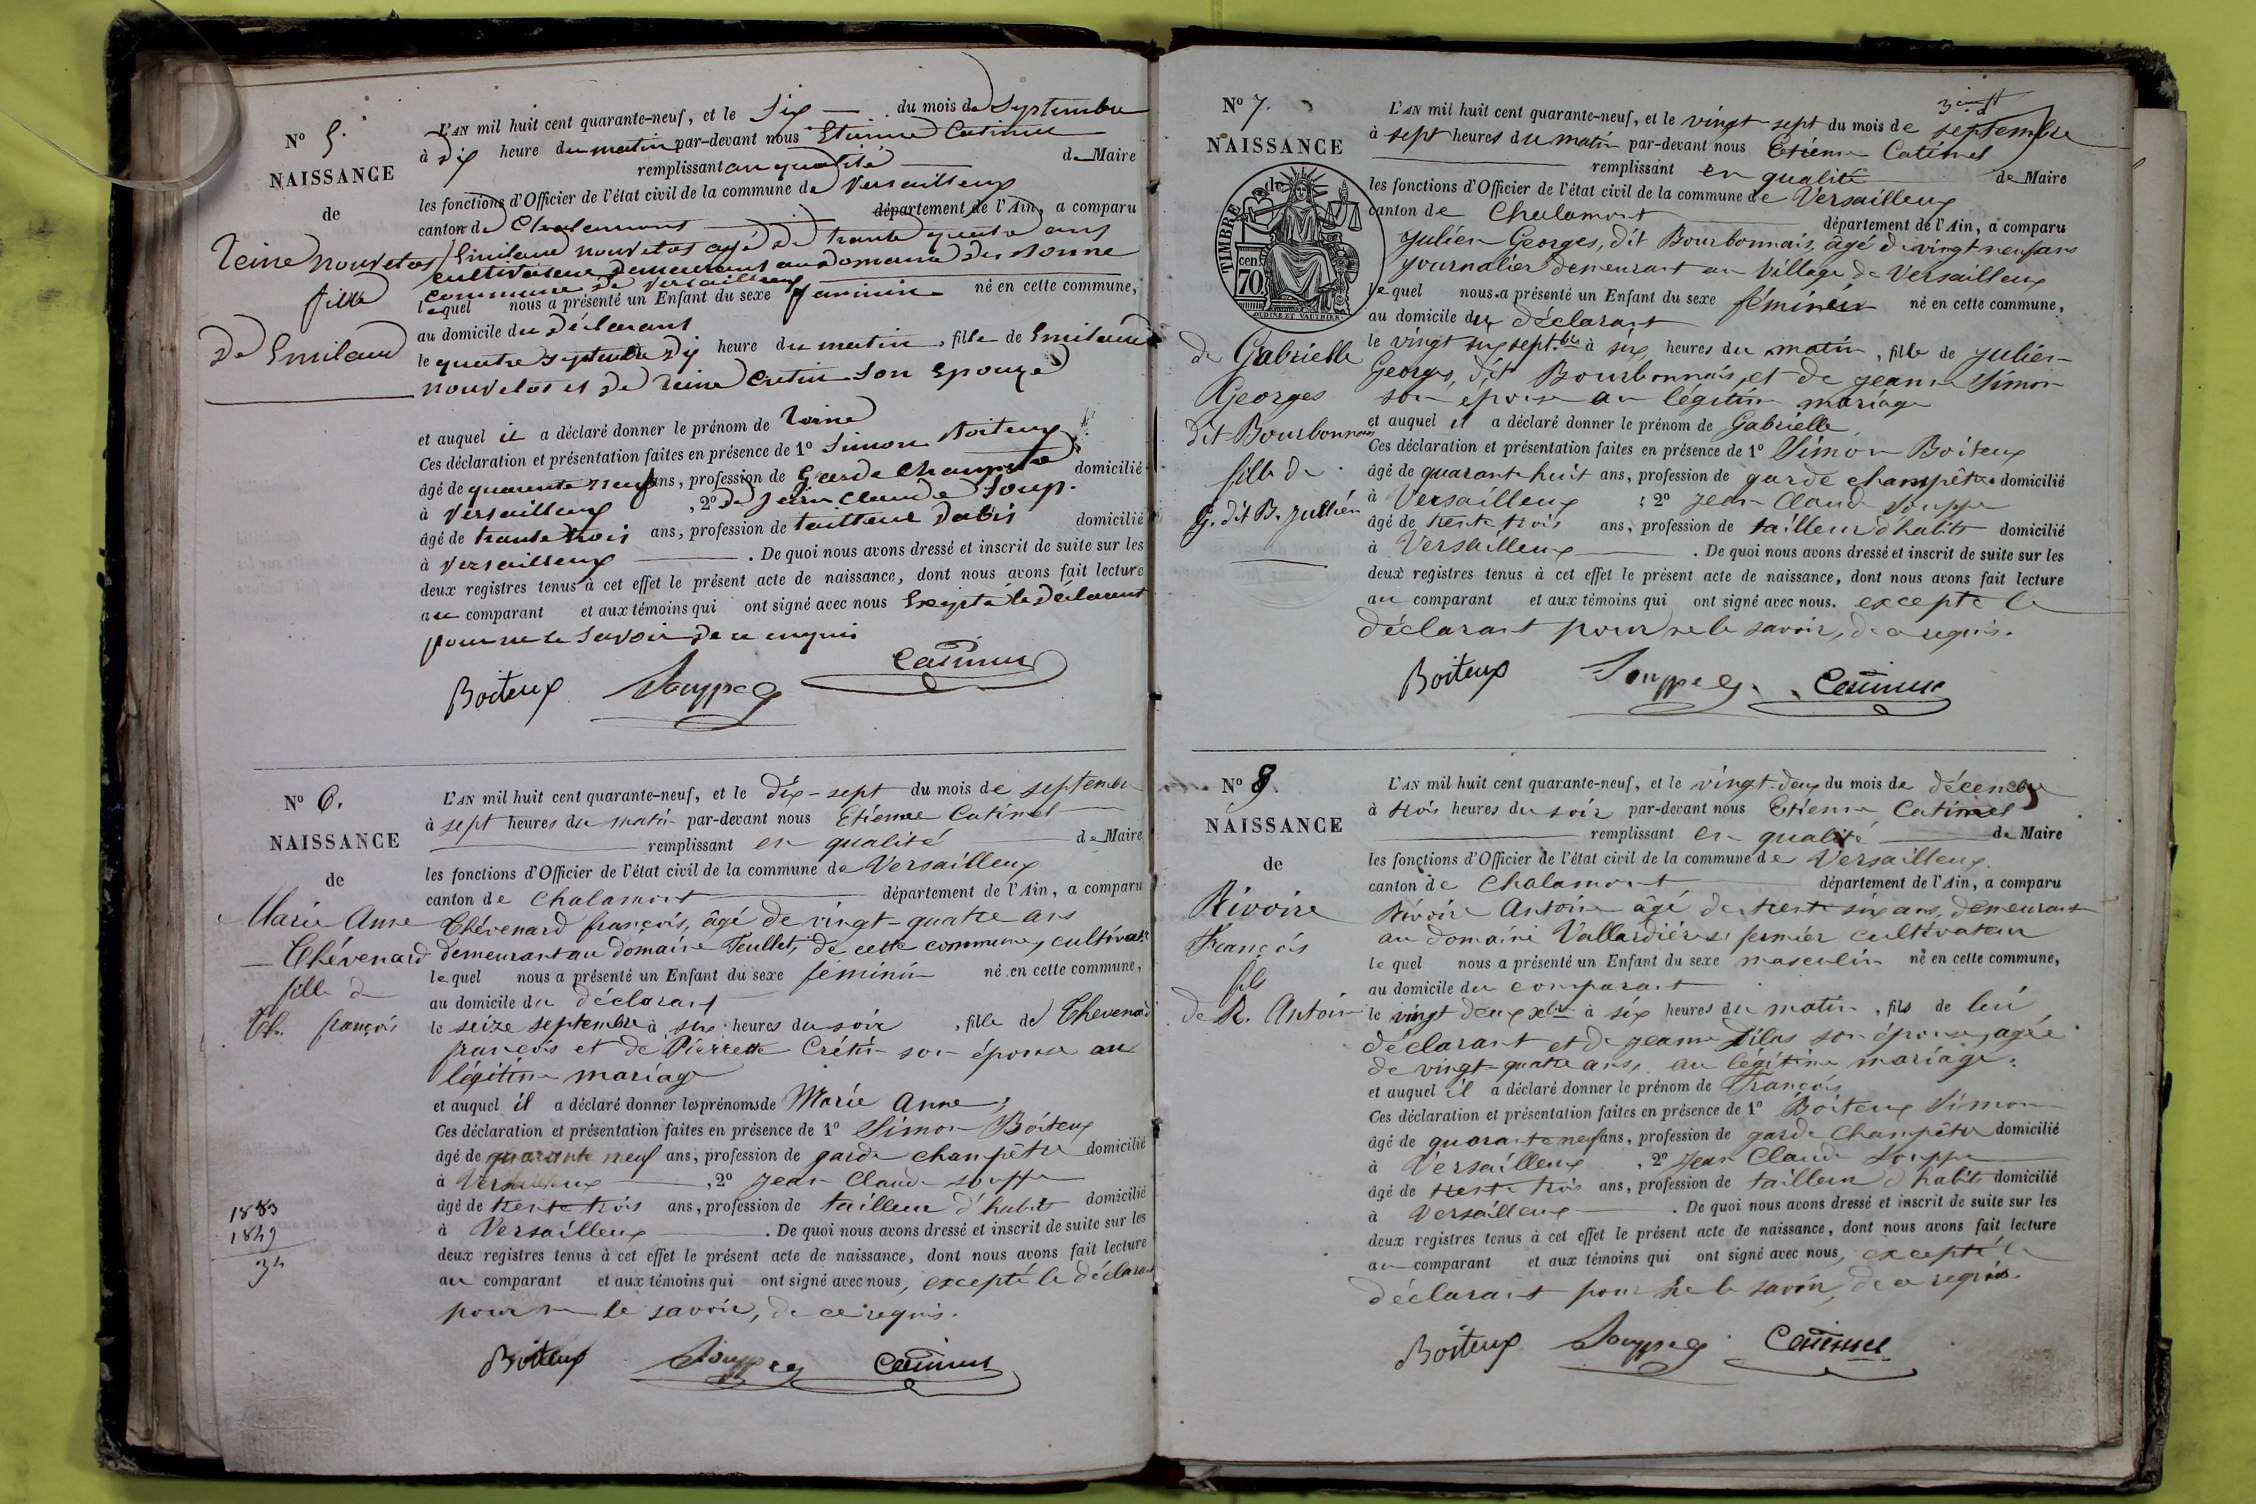 N° 5.
NAISSANCE
de
Reine nouvelas
fille
de Emiland
L'AN mil huit cent quarante-neuf, et le Six du mois de Septembre
à dix heure du matin par-devant nous Etienne Catimel
remplissant en qualité de Maire
les fonctions d'Officier de l'état civil de la commune de Versailleux
canton de Chalamont département de l'Ain, a comparu
Emiland nouvelas agé de trante quatre ans
cultivateur demeurant au domaine des sonne
commune de Versailleux
lequel nous a présenté un Enfant du sexe faminin né en cette commune,
au domicile du déclarant
le quatre septembre dix heure du matin, fille de Emiland
nouvelas et de reine Cretin son Epouze
et auquel il a déclaré donner le prénom de reine
Ces déclaration et présentation faites en présence de 1° Simon Boiteux
âgé de quarente neuf ans, profession de Garde Champetre domicilié
à Versailleux, 2° de Jean Claude Soup.
âgé de trante trois ans, profession de tailleur dabis domicilié
à Versailleux. De quoi nous avons dressé et inscrit de suite sur les
deux registres tenus à cet effet le présent acte de naissance, dont nous avons fait lecture
au comparant et aux témoins qui ont signé avec nous Exepté le déclarent
pour ne le savoir de ce enquis
Boiteux Souppe Catimel
N° 6.
NAISSANCE
de
Marie Anne
Thévenard
fille de
Th. françois
1883
1849
34
L'AN mil huit cent quarante-neuf, et le dix-sept du mois de septembre
à sept heures du matin par-devant nous Etienne Catimel
remplissant en qualité de Maire
les fonctions d'Officier de l'état civil de la commune de Versailleux
canton de Chalamont département de l'Ain, a comparu
Thévenard françois, âgé de vingt-quatre ans
demeurant au domaine Feullet, de cette commune, cultivatr
lequel nous a présenté un Enfant du sexe féminin né en cette commune,
au domicile du déclarant
le seize septembre à six heures du soir, fille de Thevenard
françois et de Pierrette Crétin son épouse au
légitime mariage
et auquel il a déclaré donner les prénoms de Marie Anne;
Ces déclaration et présentation faites en présence de 1° Simon Boiteux
âgé de quarante neuf ans, profession de garde champêtre domicilié
à Versailleux, 2° Jean Claude Souppe
âgé de trente trois ans, profession de tailleur d'habits domicilié
à Versailleux. De quoi nous avons dressé et inscrit de suite sur les
deux registres tenus à cet effet le présent acte de naissance, dont nous avons fait lecture
au comparant et aux témoins qui ont signé avec nous, excepté le déclarant
pour ne le savoir, de ce requis.
Boiteux Souppe Catimel
N° 7.
NAISSANCE
de
TIMBRE
70 cen
OUDINÉ ET VAUTHIER
de Gabrielle
Georges
dit Bourbonnais
fille de
G. dit B. Jullién
L'AN mil huit cent quarante-neuf, et le vingt-sept du mois de septembre
à sept heures du matin par-devant nous Etienne Catimel
remplissant en qualité de Maire
les fonctions d'Officier de l'état civil de la commune de Versailleux
canton de Chalamont département de l'Ain, a comparu
Julien Georges, dit Bourbonnais, âgé de vingt neuf ans
journalier demeurant au village de Versailleux
lequel nous a présenté un Enfant du sexe féminin né en cette commune,
au domicile du déclarant
le vingt six sept.bre à six heures du matin, fille de Julien
Georges, dit Bourbonnais, et de Jeanne Simon
son épouse au légitime mariage
et auquel il a déclaré donner le prénom de Gabrielle
Ces déclaration et présentation faites en présence de 1° Simon Boiteux
âgé de quarante huit ans, profession de garde champêtre domicilié
à Versailleux; 2° Jean Claude Souppe
âgé de trente trois ans, profession de tailleur d'habits domicilié
à Versailleux. De quoi nous avons dressé et inscrit de suite sur les
deux registres tenus à cet effet le présent acte de naissance, dont nous avons fait lecture
au comparant et aux témoins qui ont signé avec nous. excepté le
déclarant pour ne le savoir, de ce requis.
Boiteux Souppe Catimel
N° 8.
NAISSANCE
de
Rivoire
François
fils
de R. Antoine
L'AN mil huit cent quarante-neuf, et le vingt-deux du mois de décembre
à trois heures du soir par-devant nous Etienne Catimel
remplissant en qualité de Maire
les fonctions d'Officier de l'état civil de la commune de Versailleux.
canton de Chalamont département de l'Ain, a comparu
Rivoire Antoine âgé de trente six ans, demeurant
au domaine Vallardières fermier cultivateur
lequel nous a présenté un Enfant du sexe masculin né en cette commune,
au domicile du comparant
le vingt deux xbre à six heures du matin, fils de lui
déclarant et de Jeanne Dilas son épouse, agée
de vingt-quatre ans, au légitime mariage.
et auquel il a déclaré donner le prénom de François
Ces déclaration et présentation faites en présence de 1° Boiteux Simon
âgé de quarante neuf ans, profession de garde champêtre domicilié
à Versailleux, 2° Jean Claude Souppe
âgé de trente trois ans, profession de tailleur d'habits domicilié
à Versailleux. De quoi nous avons dressé et inscrit de suite sur les
deux registres tenus à cet effet le présent acte de naissance, dont nous avons fait lecture
au comparant et aux témoins qui ont signé avec nous, excepté le
déclarant pour ne le savoir, de ce requis.
Boiteux Souppe Catimel